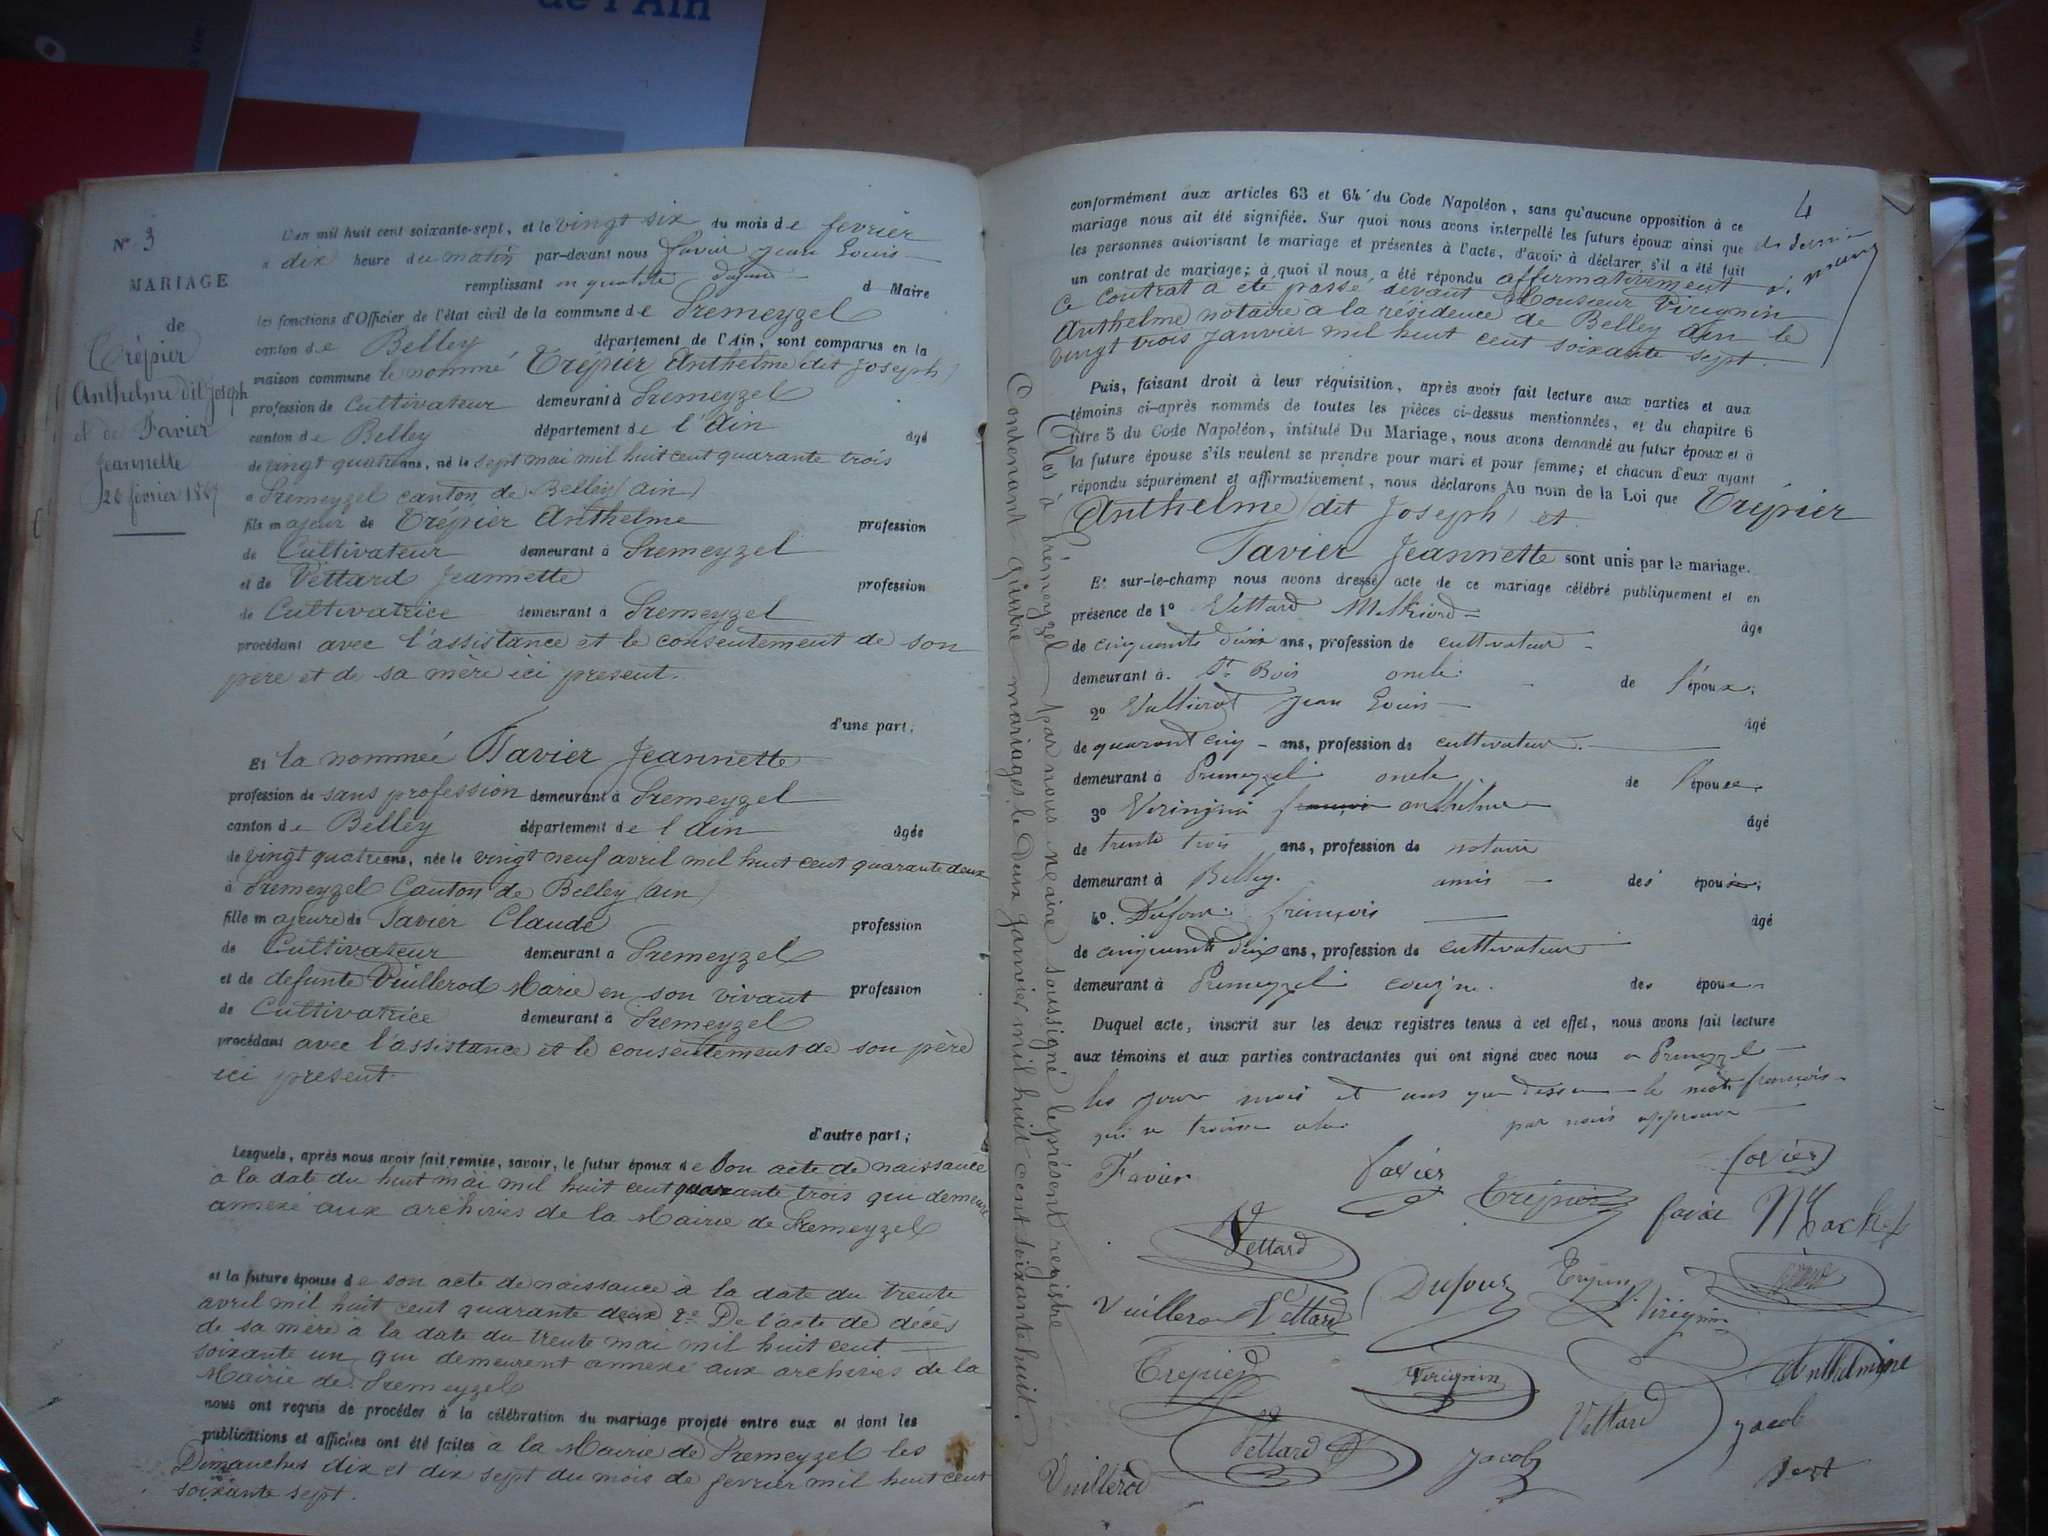 de l'Ain
N° 3
MARIAGE
de
Trépier
Anthelme dit Joseph
et de Favier
Jeannette
26 février 1867
L'an mil huit cent soixante-sept, et le vingt six du mois de fevrier
à dix heure du matin par-devant nous favier jean Louis
remplissant en qualité d Maire
les fonctions d'Officier de l'état civil de la commune de Premeyzel
canton de Belley département de l'Ain, sont comparus en la
maison commune le nommé Trépier Anthelme (dit joseph)
profession de Cultivateur demeurant à Premeyzel
canton de Belley département de l'Ain âgé
de vingt quatre ans, né le sept mai mil huit cent quarante trois
à Premeyzel canton de Belley (ain)
fils majeur de Trépier Anthelme profession
de Cultivateur demeurant à Premeyzel
et de Vettard Jeannette profession
de Cultivatrice demeurant à Premeyzel
procédant avec l'assistance et le consentement de son
pere et de sa mère ici present.
d'une part;
Et la nommée Favier Jeannette
profession de sans profession demeurant à Premeyzel
canton de Belley département de l'Ain âgée
de vingt quatre ans, née le vingt neuf avril mil huit cent quarante deux
à Premeyzel Canton de Belley (ain)
fille majeure de Favier Claude profession
de Cultivateur demeurant à Premeyzel
et de defunte Vuillerod Marie en son vivant profession
de Cultivatrice demeurant à Premeyzel
procédant avec l'assistance et le consentement de son père
ici present.
d'autre part;
Lesquels, après nous avoir fait remise, savoir, le futur époux de Son acte de naissance
à la date du huit mai mil huit cent quarante trois qui demeure
annexé aux archives de la Mairie de Premeyzel
et la future épouse de son acte de naissance à la date du trente
avril mil huit cent quarante deux 2° De l'acte de décès
de sa mère à la date du trente mai mil huit cent
soixante un qui demeurent annexé aux archives de la
Mairie de Premeyzel
nous ont requis de procéder à la célébration du mariage projeté entre eux et dont les
publications et affiches ont été faites à la Mairie de Premeyzel les
Dimanches dix et dix sept du mois de fevrier mil huit cent
soixante sept.
4
conformément aux articles 63 et 64 du Code Napoléon, sans qu'aucune opposition à ce
mariage nous ait été signifiée. Sur quoi nous avons interpellé les futurs époux ainsi que
les personnes autorisant le mariage et présentes à l'acte, d'avoir à déclarer s'il a été fait
un contrat de mariage; à quoi il nous a été répondu affirmativement
ce contrat a été passé devant Monsieur Virignin
Anthelme notaire à la résidence de Belley Ain le
vingt trois janvier mil huit cent soixante sept.
Puis, faisant droit à leur réquisition, après avoir fait lecture aux parties et aux
témoins ci-après nommés de toutes les pièces ci-dessus mentionnées, et du chapitre 6
titre 5 du Code Napoléon, intitulé Du Mariage, nous avons demandé au futur époux et à
la future épouse s'ils veulent se prendre pour mari et pour femme; et chacun d'eux ayant
répondu séparément et affirmativement, nous déclarons Au nom de la Loi que Trépier
Anthelme (dit Joseph) et
Favier Jeannette sont unis par le mariage.
Et sur-le-champ nous avons dressé acte de ce mariage célébré publiquement et en
présence de 1° Vettard Melkiord âgé
de cinquante deux ans, profession de cultivateur
demeurant à St Bois oncle de l'époux;
2° Vullierod Jean Louis âgé
de quarante cinq ans, profession de cultivateur
demeurant à Premeyzel oncle de l'épouse
3° Virignin françois anthelme âgé
de trente trois ans, profession de notaire
demeurant à Belley. amis des époux;
4° Dufour françois âgé
de cinquante dix ans, profession de cultivateur
demeurant à Premeyzel cousin des époux
Duquel acte, inscrit sur les deux registres tenus à cet effet, nous avons fait lecture
aux témoins et aux parties contractantes qui ont signé avec nous a Premeyzel
les jour mois et ans que dessu le mot françois
qui se trouve par nous approuvé
Favier favier favier
Trépier favier Mochet
Vettard
Dufour
Vuillerod Vettard Virignin
Trepier Virignin Anthelmine
Vettard jacob
Vettard Jacob
Vuillerod Bert
Clos à Prémeyzel par nous maire soussigné le présent registre
Contenant quatre mariages, le deux janvier mil huit cent soixante huit.